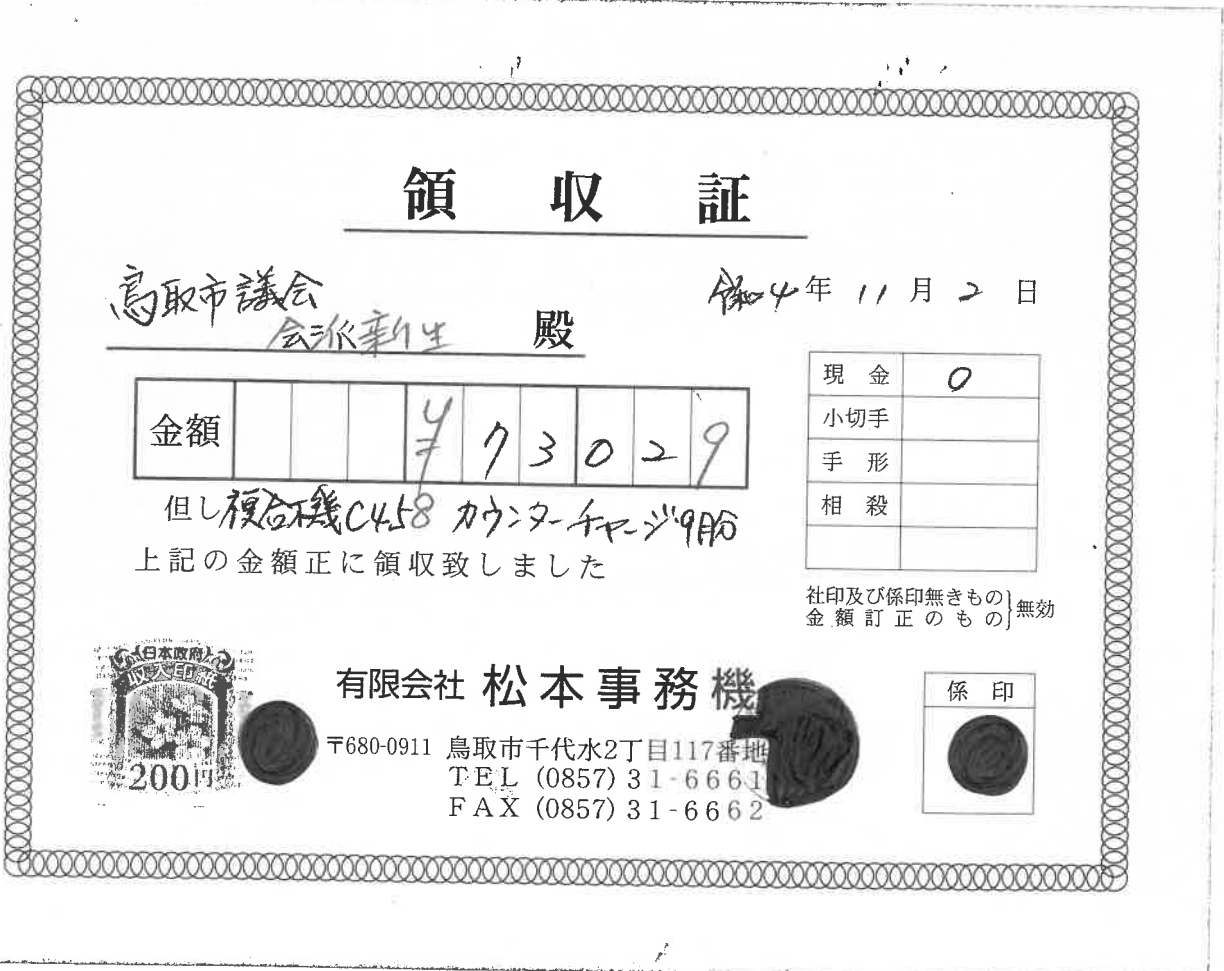 領収証
鳥取市議会
会派新生 殿
令和4年11月2日
金額 ¥73029
但し複合機C458 カウンターチャージ9月分
上記の金額正に領収致しました
現金 0
小切手
手形
相殺
社印及び係印無きもの
金額訂正のもの}無効
日本政府
収入印紙
200円
有限会社 松本事務機
〒680-0911 鳥取市千代水2丁目117番地
TEL (0857) 31-6661
FAX (0857) 31-6662
係印